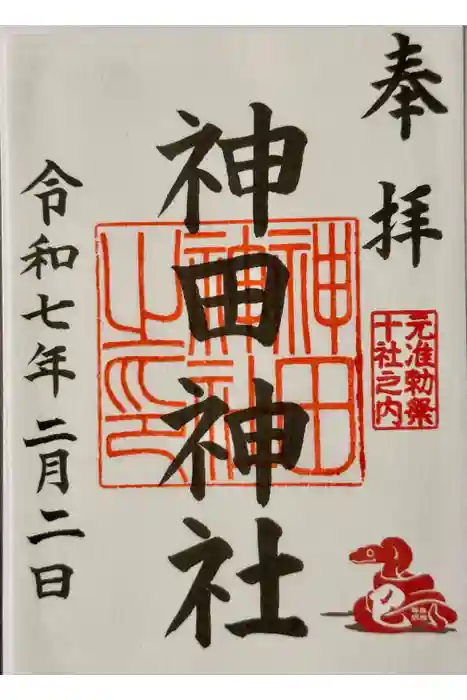 奉拝
元准勅祭
十社之内
神田神社
神田
神社
之印
巳
令和七年二月二日